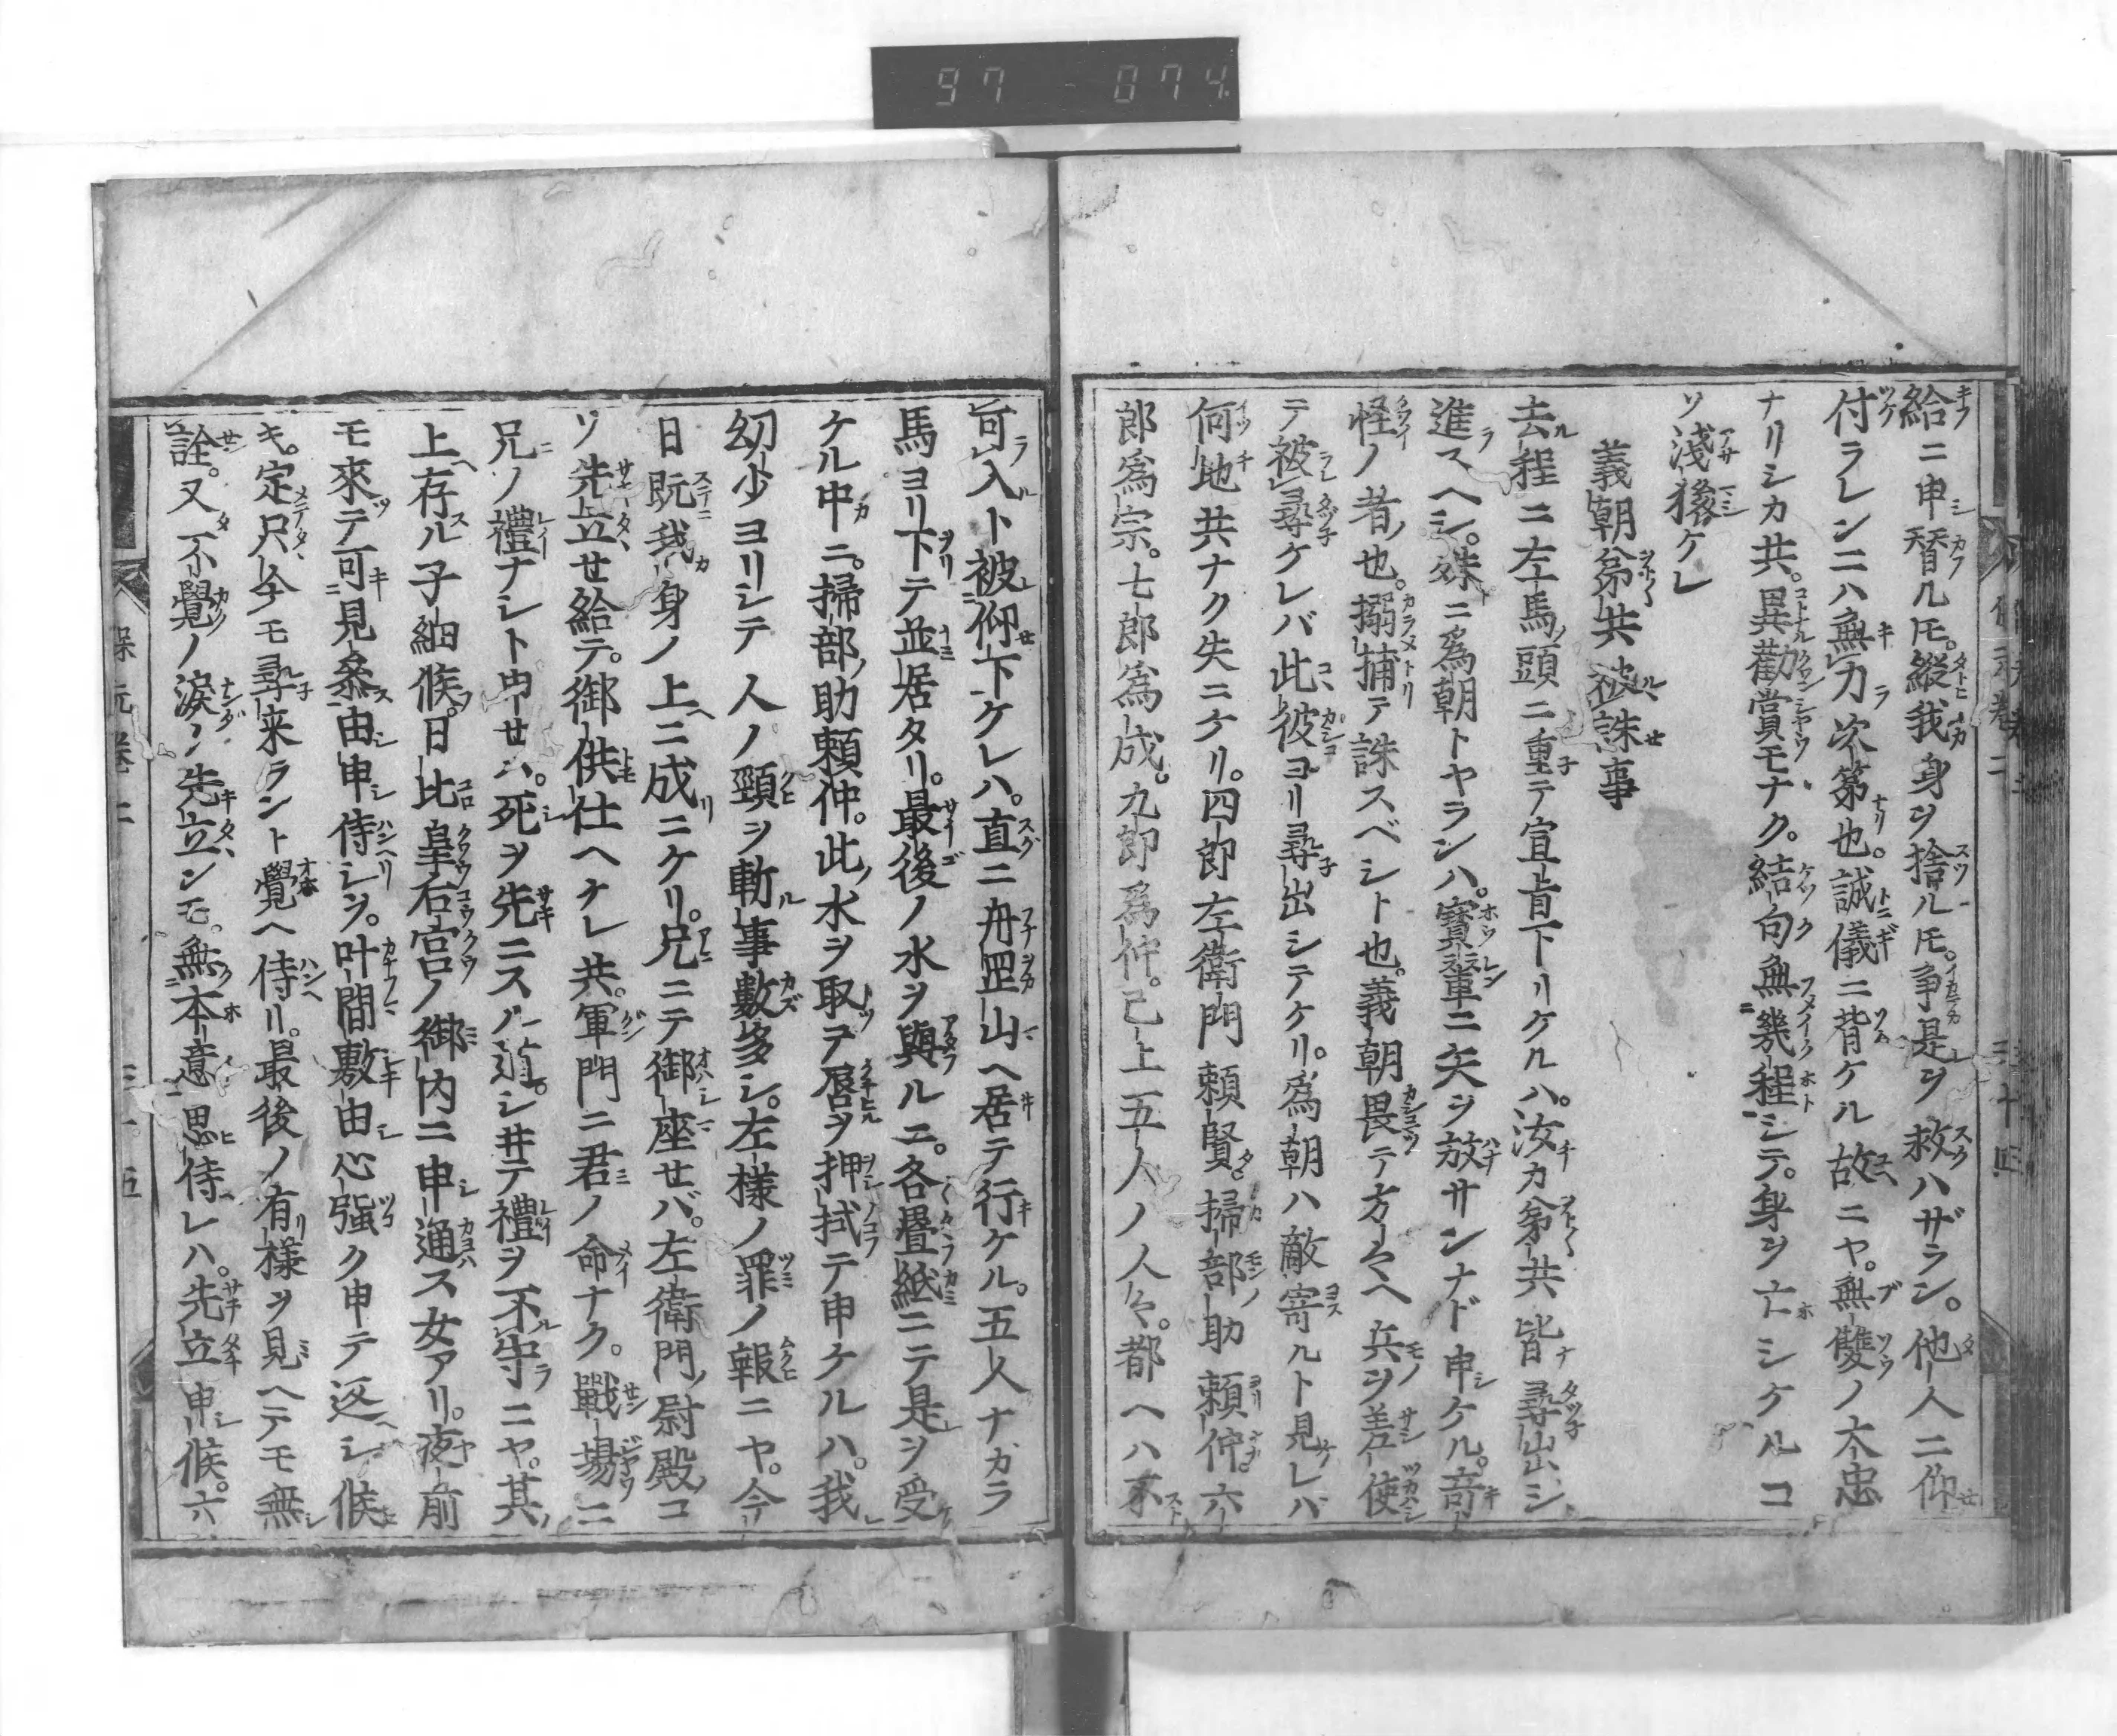 97 874
給ニ申替ルモ。縱我身ヲ捨ルモ。爭是ヲ救ハザラン。他人ニ仰
付ラレンニハ無力次第也。誠儀ニ背ケル故ニヤ。無雙ノ大忠
ナリシカ共。異勸賞モナク。結句無幾程シテ。身ヲ亡シケルコ
ソ淺猿ケレ
義朝弟共被誅事
去程ニ左馬頭ニ重テ宣旨下リケルハ。汝カ弟共皆尋出シ
進スヘシ。殊ニ爲朝トヤランハ。寶輦ニ矢ヲ放サンナド申ケル。奇
怪ノ者也。搦捕テ誅スベシト也。義朝畏テ方々ヘ兵ヲ差使
テ被尋ケレバ此彼ヨリ尋出シテケリ。爲朝ハ敵寄ルト見レバ
何地共ナク失ニケリ。四郎左衛門頼賢。掃部助頼仲。六
郎爲宗。七郎爲成。九郎爲仲。已上五人ノ人々。都ヘハ不
可入ト被仰下ケレハ。直ニ舟岡山ヘ居テ行ケル。五人ナカラ
馬ヨリ下テ並居タリ。最後ノ水ヲ與ルニ。各疊紙ニテ是ヲ受
ケル中ニ。掃部助頼仲。此水ヲ取テ唇ヲ押拭テ申ケルハ。我
幼少ヨリシテ人ノ頸ヲ斬事數多シ。左樣ノ罪ノ報ニヤ。今
日既我身ノ上ニ成ニケリ。兄ニテ御座セバ。左衛門尉殿コ
ソ先立セ給テ。御供仕ヘケレ共。軍門ニ君ノ命ナク。戰場ニ
兄ノ禮ナシト申セハ。死ヲ先ニスル道。シ井テ禮ヲ不守ニヤ。其
上存ル子細候。日比皇后宮ノ御内ニ申通ス女アリ。夜前
モ來テ可見參由申侍シヲ。叶間敷由心強ク申テ返シ候
キ。定只今モ尋来ラント覺ヘ侍リ。最後ノ有樣ヲ見ヘテモ無
詮。又不覺ノ淚ノ先立ンモ。無本意思侍レハ。先立申候。六
保元巻二
三十五